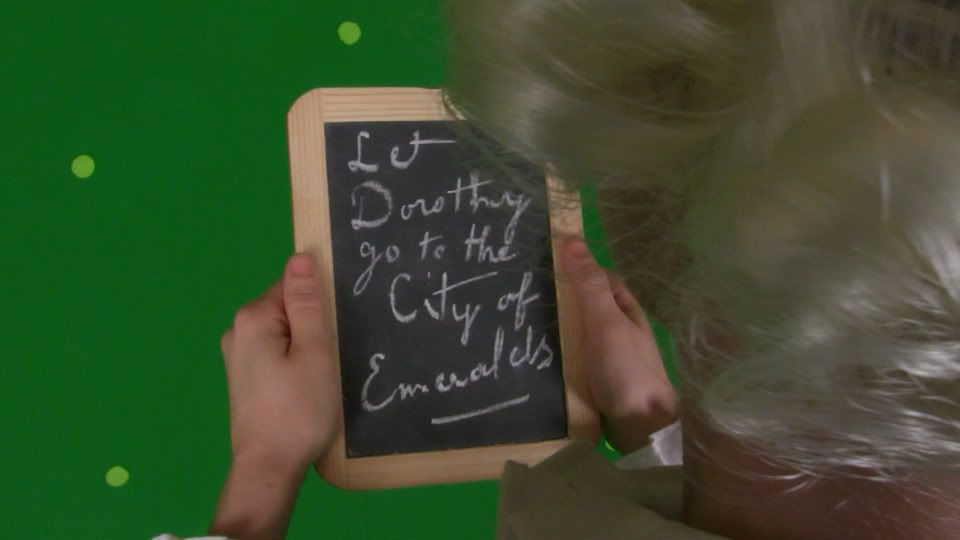 Let
Dorothy
go to the
City of
Emeralds